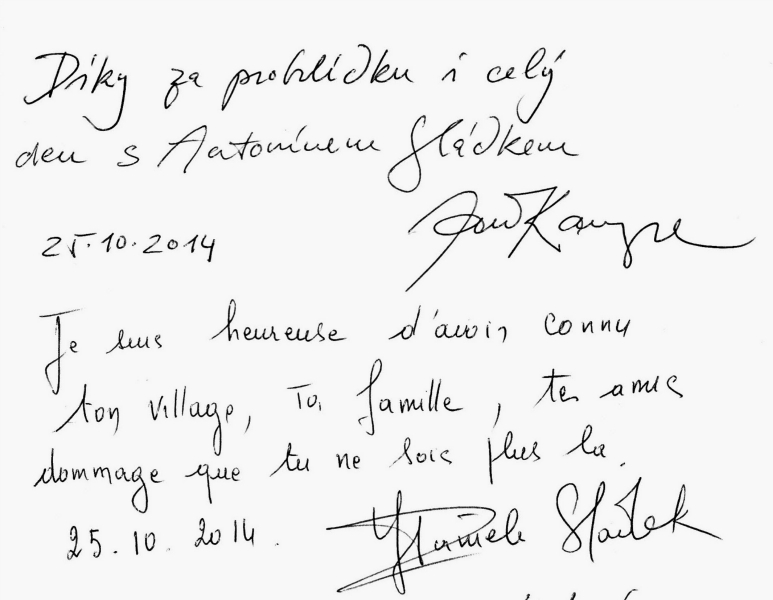 Díky za prohlídku i celý
den s Antonínem Sládkem
25.10.2014
Je suis heureuse d'avoir connu
ton village, ta famille, tes amis
dommage que tu ne sois plus la.
25.10.2014.
Sládek